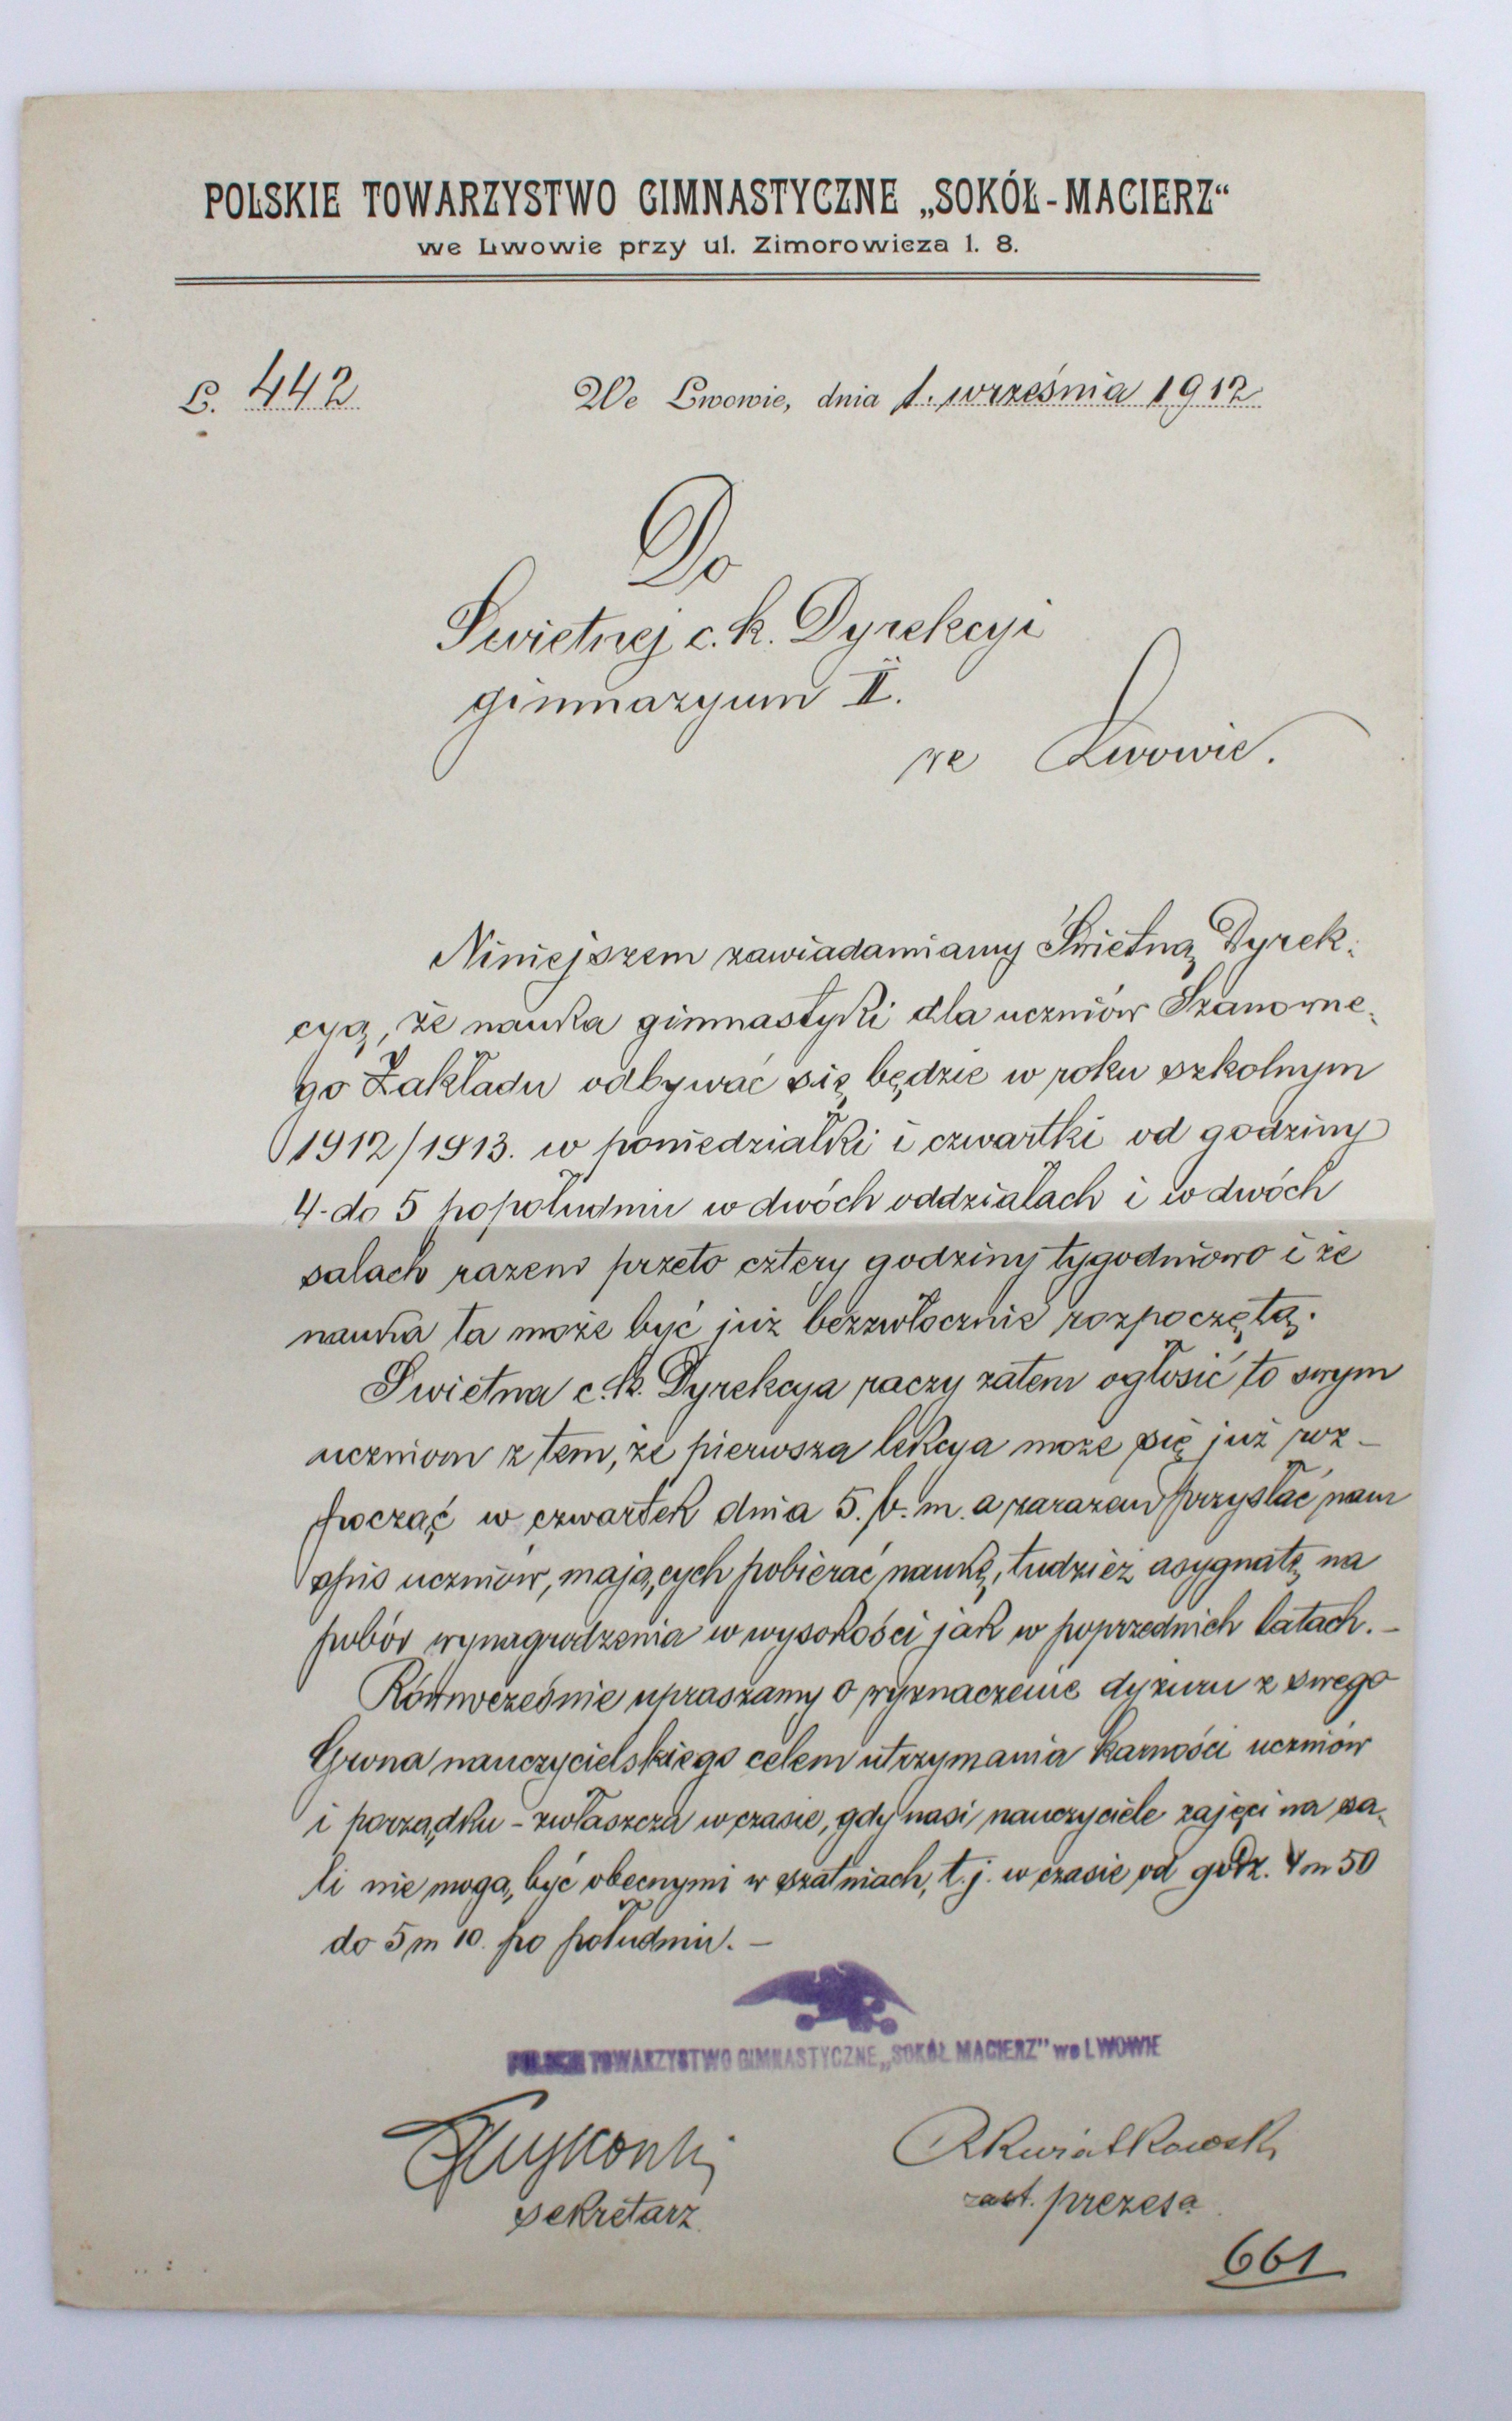 POLSKIE TOWARZYSTWO GIMNASTYCZNE „SOKÓŁ-MACIERZ“
we Lwowie przy ul. Zimorowicza l. 8.
L. 442
We Lwowie, dnia 1. września 1912
Do
Swietnej c. k. Dyrekcyi
gimnazyum II.
we Lwowie.
Niniejszem zawiadamiamy Świetną Dyrek-
cyą, że nauka gimnastyki dla uczniów Szanowne-
go Zakładu odbywać się będzie w roku szkolnym
1912/1913. w poniedziałki i czwartki od godziny
4-do 5 popołudniu w dwóch oddziałach i w dwóch
salach razem przeto cztery godziny tygodniowo i że
nauka ta może być już bezzwłocznie rozpoczętą.
Swietna c. k. Dyrekcya raczy zatem ogłosić to swym
uczniom z tem, że pierwsza lekcya może się już roz-
począć w czwartek dnia 5. b. m. a zarazem przysłać nam
spis uczniów, mających pobierać naukę, tudzież asygnatę na
pobór wynagrodzenia w wysokości jak w poprzednich latach. -
Równocześnie upraszamy o wyznaczenie dyżuru z swego
Grona nauczycielskiego celem utrzymania karności uczniów
i porządku - zwłaszcza w czasie, gdy nasi nauczyciele zajęci na sa-
li nie mogą być obecnymi w szatniach, t. j. w czasie od godz. 4 m 50
do 5 m 10. po południu. -
POLSKIE TOWARZYSTWO GIMNASTYCZNE „SOKÓŁ MACIERZ" we LWOWIE
RKwiatkowski
sekretarz
zast. prezesa
661